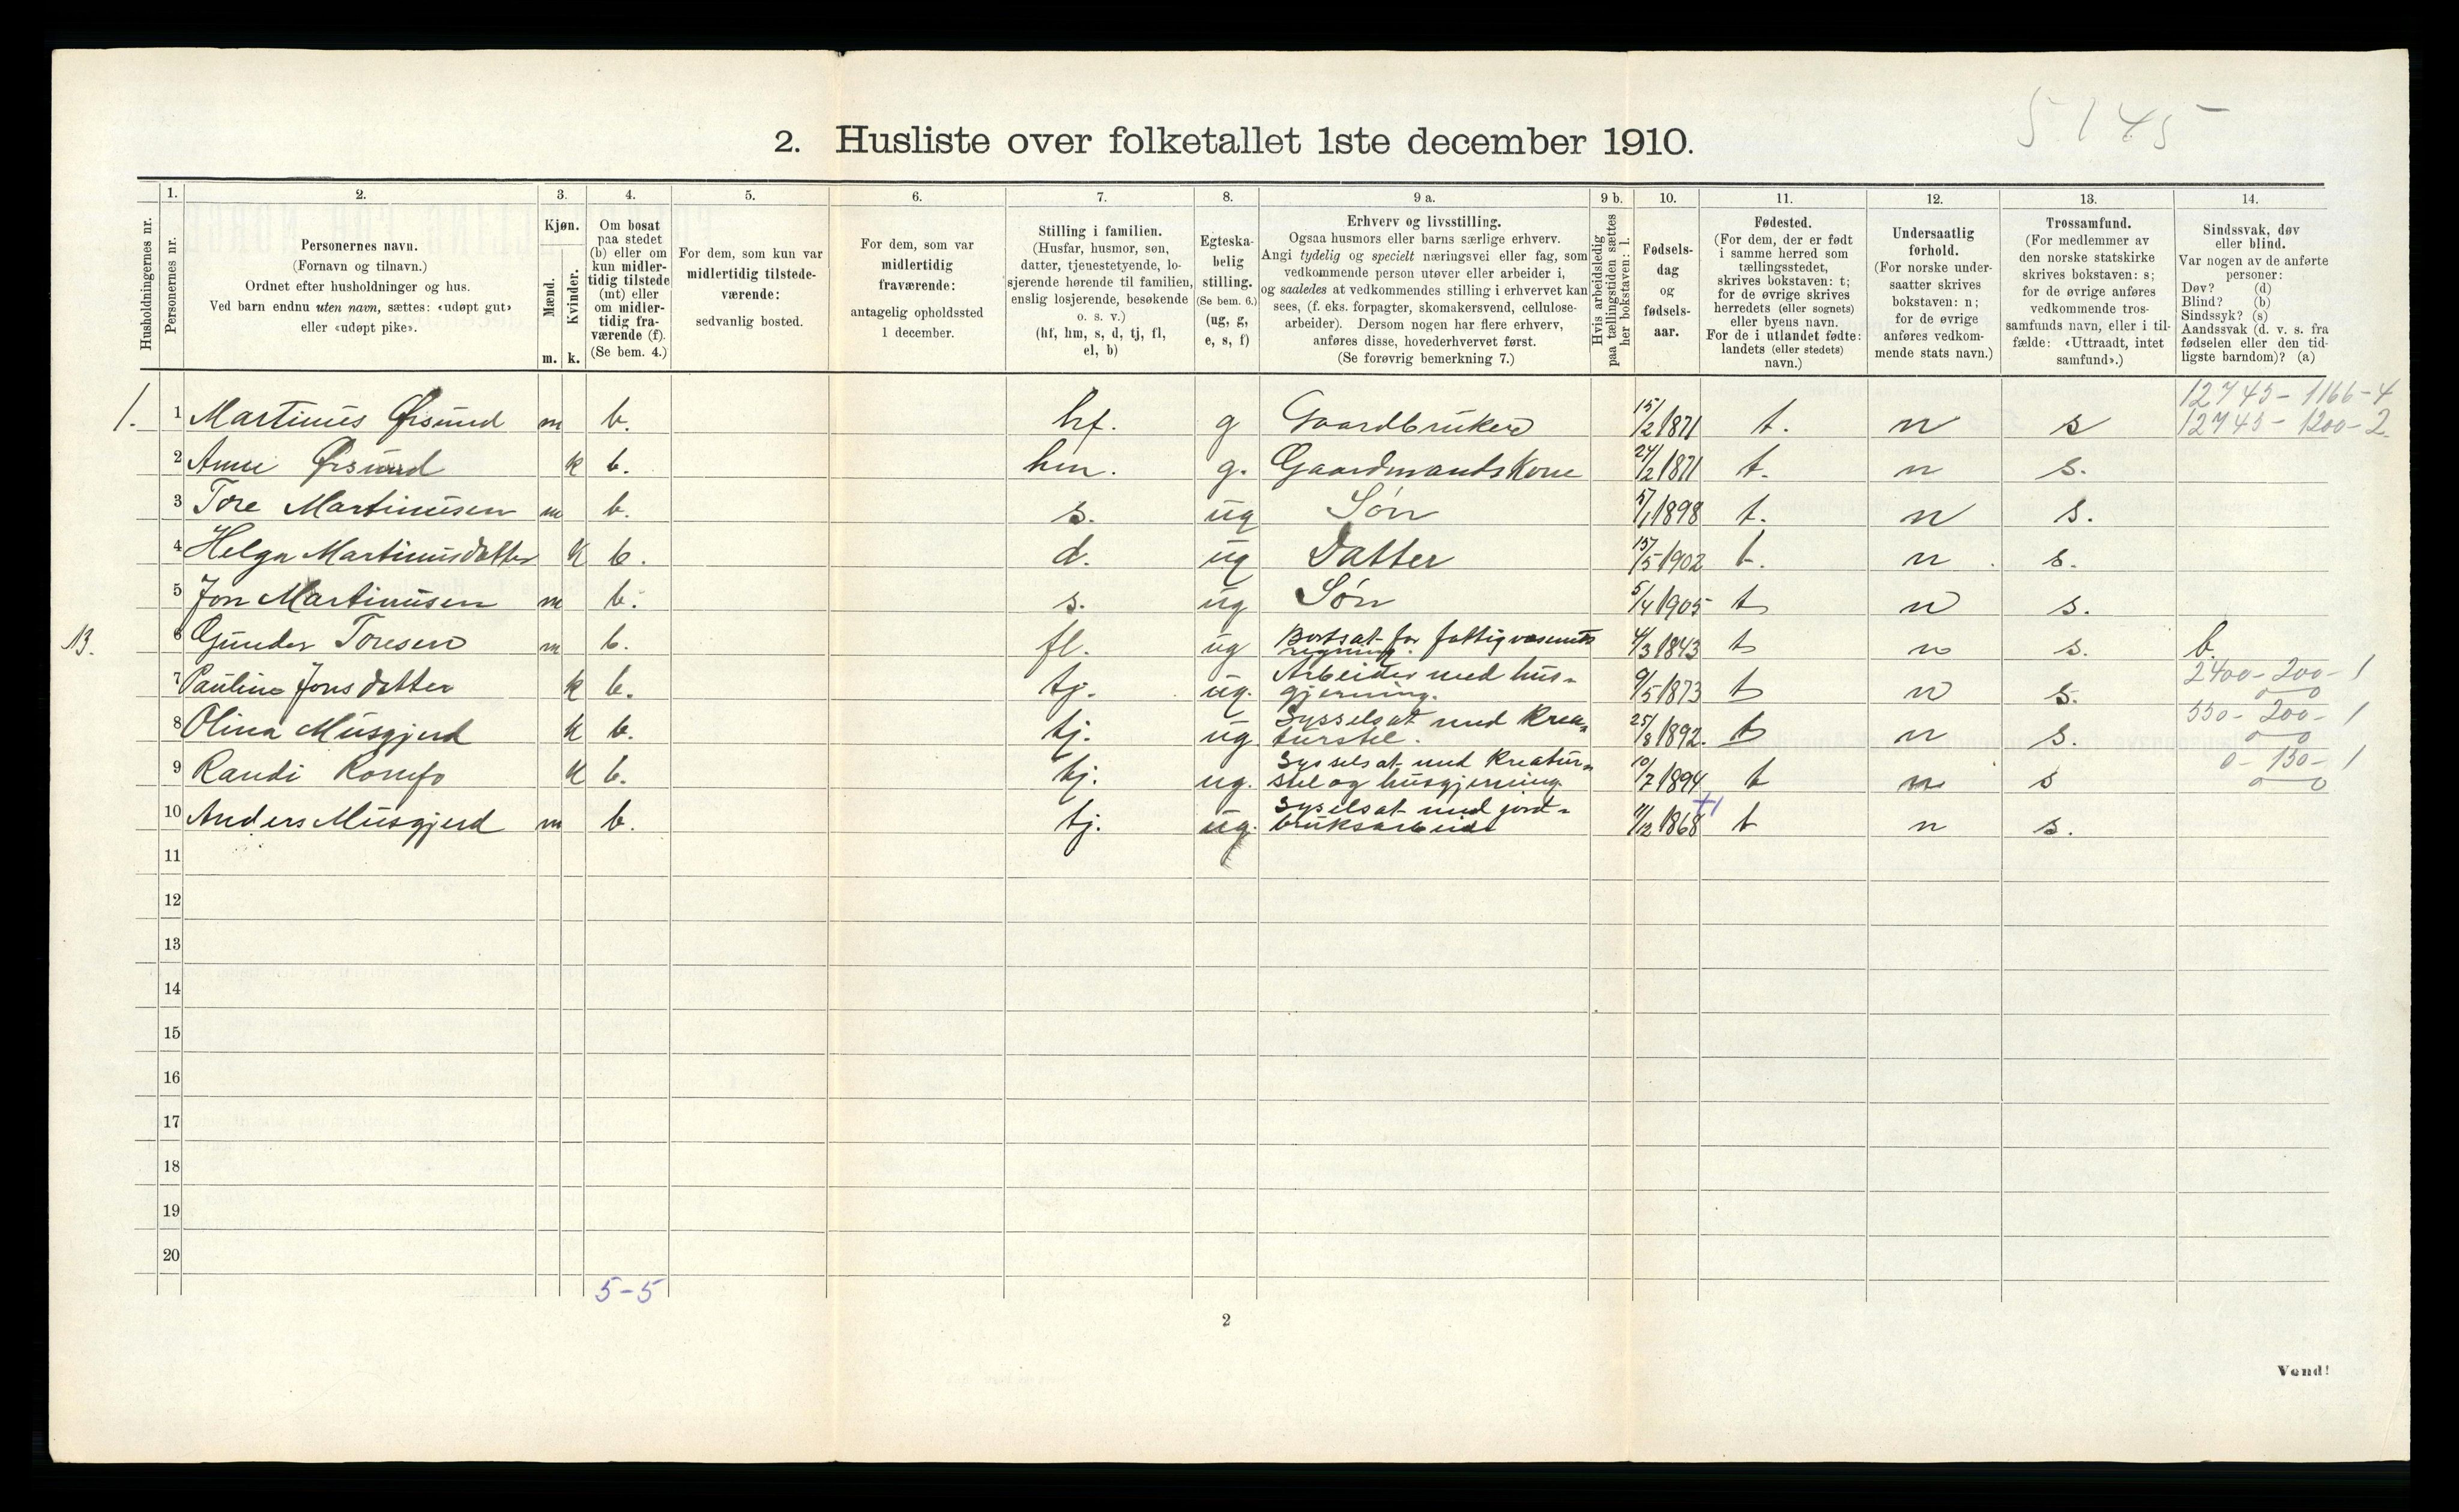 5145
2. Husliste over folketallet 1ste december 1910.
Husholdningernes nr.
1. Personernes nr.
2. Personernes navn.
(Fornavn og tilnavn.)
Ordnet efter husholdninger og hus.
Ved barn endnu uten navn, sættes: «udøpt gut»
eller «udøpt pike».
3. Kjøn.
Mænd. Kvinder.
m. k.
4. Om bosat
paa stedet
(b) eller om
kun midler-
tidig tilstede
(mt) eller
om midler-
tidig fra-
værende (f).
(Se bem. 4.)
5. For dem, som kun var
midlertidig tilstede-
værende:
sedvanlig bosted.
6. For dem, som var
midlertidig
fraværende:
antagelig opholdssted
1 december.
7. Stilling i familien.
(Husfar, husmor, søn,
datter, tjenestetyende, lo-
sjerende hørende til familien,
enslig losjerende, besøkende
o. s. v.)
(hf, hm, s, d, tj, fl,
el, b)
8. Egteska-
belig
stilling.
(Se bem. 6.)
(ug, g,
e, s, f)
9 a. Erhverv og livsstilling.
Ogsaa husmors eller barns særlige erhverv.
Angi tydelig og specielt næringsvei eller fag, som
vedkommende person utøver eller arbeider i,
og saaledes at vedkommendes stilling i erhvervet kan
sees, (f. eks. forpagter, skomakersvend, cellulose-
arbeider). Dersom nogen har flere erhverv,
anføres disse, hovederhvervet først.
(Se forøvrig bemerkning 7.)
9 b. Hvis arbeidsledig
paa tællingstiden sættes
her bokstaven: l.
10. Fødsels-
dag
og
fødsels-
aar.
11. Fødested.
(For dem, der er født
i samme herred som
tællingsstedet,
skrives bokstaven: t;
for de øvrige skrives
herredets (eller sognets)
eller byens navn.
For de i utlandet fødte:
landets (eller stedets)
navn.)
12. Undersaatlig
forhold.
(For norske under-
saatter skrives
bokstaven: n;
for de øvrige
anføres vedkom-
mende stats navn.)
13. Trossamfund.
(For medlemmer av
den norske statskirke
skrives bokstaven: s;
for de øvrige anføres
vedkommende tros-
samfunds navn, eller i til-
fælde: «Uttraadt, intet
samfund».)
14. Sindssvak, døv
eller blind.
Var nogen av de anførte
personer:
Døv? (d)
Blind? (b)
Sindssyk? (s)
Aandssvak (d. v. s. fra
fødselen eller den tid-
ligste barndom)? (a)
12743-1166-4
1. 1 Martinus Ørsund m b. hf. g Gaardbruker 15/2 1871 t. n s 12743-1200-2
2 Anne Ørsund k b. hm. g. Gaardmandskone 24/2 1871 t. n s.
3 Tore Martinusen m b. s. ug Søn 5/1 1898 t. n s.
4 Helga Martinusdatter k b. d. ug Datter 15/5 1902 t. n s.
5 Jon Martinusen m b. s. ug Søn 5/4 1905 t n s.
13. 6 Gunder Toresen m b. fl. ug Bortsat for fattigvæsenets
regning. 4/3 1843 t n s. b.
7 Pauline Jonsdatter k b. tj. ug. Arbeider med hus-
gjerning. 9/5 1873 t n s. 2400-200-1
0 0
8 Olina Musgjerd k b. tj. ug. Sysselsat med krea-
turstel. 25/8 1892. t n s. 550-200-1
0 0
9 Randi Romfo k b. tj. ug. Sysselsat med kreatur-
stel og husgjerning. 10/7 1894 t n s 0-150-1
0 0
10 Anders Musgjerd m b. tj. ug. Sysselsat med jord-
bruksarbeide 11/12 1868 +1 t n s.
11
12
13
14
15
16
17
18
19
20
5-5
2
Vend!